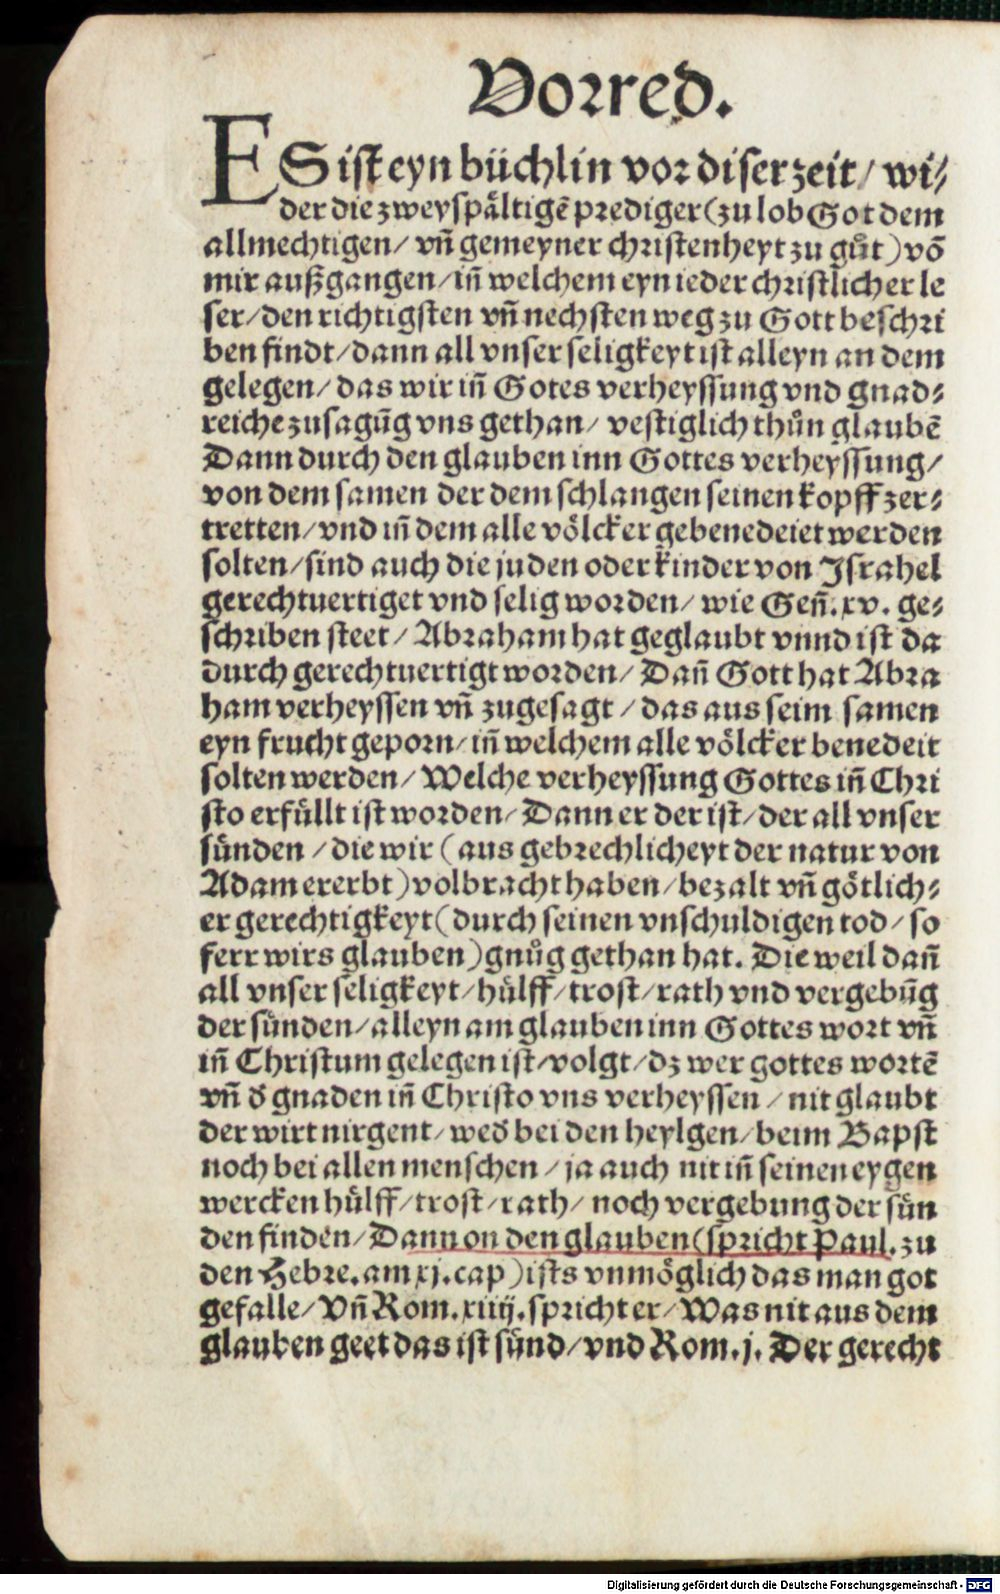 Vorred.
ES ist eyn büchlin vor diser zeit/ wi⸗
der die zweyspältigẽ prediger (zu lob Got dem
allmechtigen/ vñ gemeyner christenheyt zu gůt) võ
mir außgangen/ iñ welchem eyn ieder christlicher le
ser/ den richtigsten vñ nechsten weg zu Gott beschri
ben findt/ dann all vnser seligkeyt ist alleyn an dem
gelegen/ das wir iñ Gotes verheyssung vnd gnad⸗
reiche zusagũg vns gethan/ vestiglich thůn glaubẽ
Dann durch den glauben inn Gottes verheyssung/
von dem samen der dem schlangen seinen kopff zer⸗
tretten/ vnd iñ dem alle völcker gebenedeiet werden
solten/ sind auch die juden oder kinder von Israhel
gerechtuertiget vnd selig worden/ wie Geñ. xv. ge⸗
schriben steet/ Abraham hat geglaubt vnnd ist da
durch gerechtuertigt worden/ Dañ Gott hat Abra
ham verheyssen vñ zugesagt/ das aus seim samen
eyn frucht geporn/ iñ welchem alle völcker benedeit
solten werden/ Welche verheyssung Gottes iñ Chri
sto erfüllt ist worden/ Dann er der ist/ der all vnser
sünden/ die wir (aus gebrechlicheyt der natur von
Adam ererbt) volbracht haben/ bezalt vñ götlich⸗
er gerechtigkeyt (durch seinen vnschuldigen tod/ so
ferr wirs glauben) gnůg gethan hat. Die weil dañ
all vnser seligkeyt/ hülff/ trost/ rath vnd vergebũg
der sünden/ alleyn am glauben inn Gottes wort vñ
iñ Christum gelegen ist/ volgt/ dz wer gottes wortẽ
vñ đ gnaden iñ Christo vns verheyssen/ nit glaubt
der wirt nirgent/ weđ bei den heylgen/ beim Bapst
noch bei allen menschen/ ja auch nit iñ seinen eygen
wercken hülff/ trost/ rath/ noch vergebung der sün
den finden/ Dann on den glauben (spricht Paul. zu
den Hebre. am xj. cap) ists vnmöglich das man got
gefalle/ Vñ Rom. xiiij. spricht er/ Was nit aus dem
glauben geet das ist sünd/ vnd Rom. j. Der gerecht
Digitalisierung gefördert durch die Deutsche Forschungsgemeinschaft - DFG